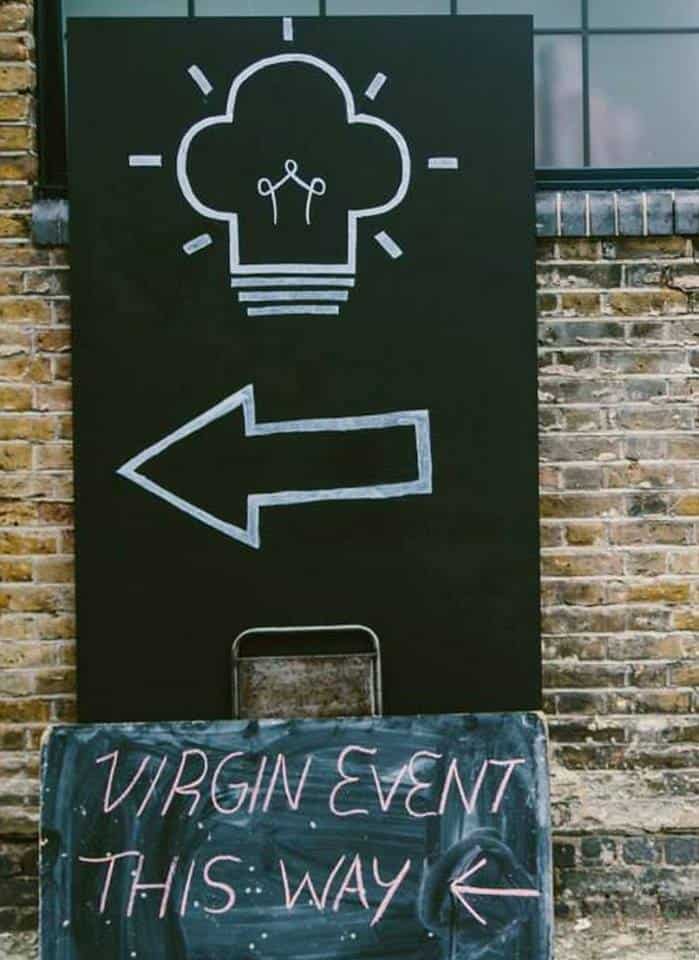 VIRGIN EVENT
THIS WAY ←